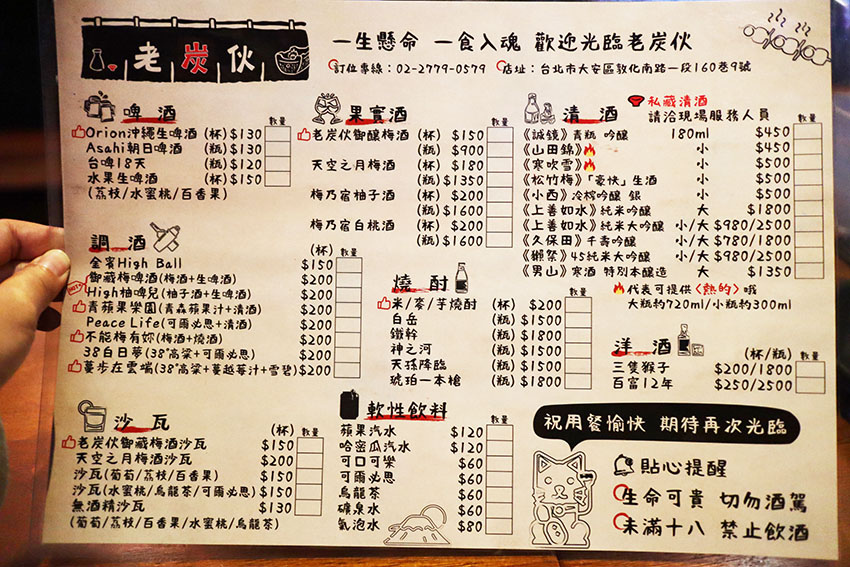 老炭伙
一生懸命 一食入魂 歡迎光臨老炭伙
訂位專線：02-2779-0579 店址：台北市大安區敦化南路一段160巷9號
啤酒 數量
Orion沖繩生啤酒 (杯) $130
Asahi朝日啤酒 (瓶) $130
台啤18天 (瓶) $120
水果生啤酒 (杯) $150
(荔枝/水蜜桃/百香果)
調酒 (杯) 數量
金賓High Ball $150
御藏梅啤酒(梅酒+生啤酒) $200
High柚啤兒(柚子酒+生啤酒) $200
青蘋果樂園(青森蘋果汁+清酒) $200
Peace Life(可爾必思+清酒) $200
不能梅有妳(梅酒+燒酒) $200
38白日夢(38°高粱+可爾必思) $200
蔓步在雲端(38°高粱+蔓越莓汁+雪碧) $200
沙瓦 (杯) 數量
老炭伙御藏梅酒沙瓦 $150
天空之月梅酒沙瓦 $200
沙瓦(葡萄/荔枝/百香果) $150
沙瓦(水蜜桃/烏龍茶/可爾必思) $150
無酒精沙瓦 $130
(葡萄/荔枝/百香果/水蜜桃/烏龍茶)
果實酒 數量
老炭伙御釀梅酒 (杯) $150
(瓶) $900
天空之月梅酒 (杯) $180
(瓶) $1350
梅乃宿柚子酒 (杯) $200
(瓶) $1600
梅乃宿白桃酒 (杯) $200
(瓶) $1600
燒酎 數量
米/麥/芋燒酎 (杯) $200
白岳 (瓶) $1500
鐵幹 (瓶) $1500
神之河 (瓶) $1500
天孫降臨 (瓶) $1500
琥珀一本槍 (瓶) $1800
軟性飲料 數量
蘋果汽水 $120
哈密瓜汽水 $120
可口可樂 $60
可爾必思 $60
烏龍茶 $60
礦泉水 $60
氣泡水 $80
清酒 私藏清酒
請洽現場服務人員
《誠鏡》青瓶 吟釀 180ml $450
《山田錦》 小 $450
《寒吹雪》 小 $500
《松竹梅》「豪快」生酒 小 $500
《小西》冷樽吟釀 銀 小 $500
《上善如水》純米吟釀 大 $1800
《上善如水》純米大吟釀 小/大 $980/2500
《久保田》千壽吟釀 小/大 $780/1800
《獺祭》45純米大吟釀 小/大 $980/2500
《男山》寒酒 特別本釀造 大 $1350
代表可提供〈熱的〉哦
大瓶約720ml/小瓶約300ml
洋酒 (杯/瓶) 數量
三隻猴子 $200/1800
百富12年 $250/2500
祝用餐愉快 期待再次光臨
貼心提醒
生命可貴 切勿酒駕
未滿十八 禁止飲酒